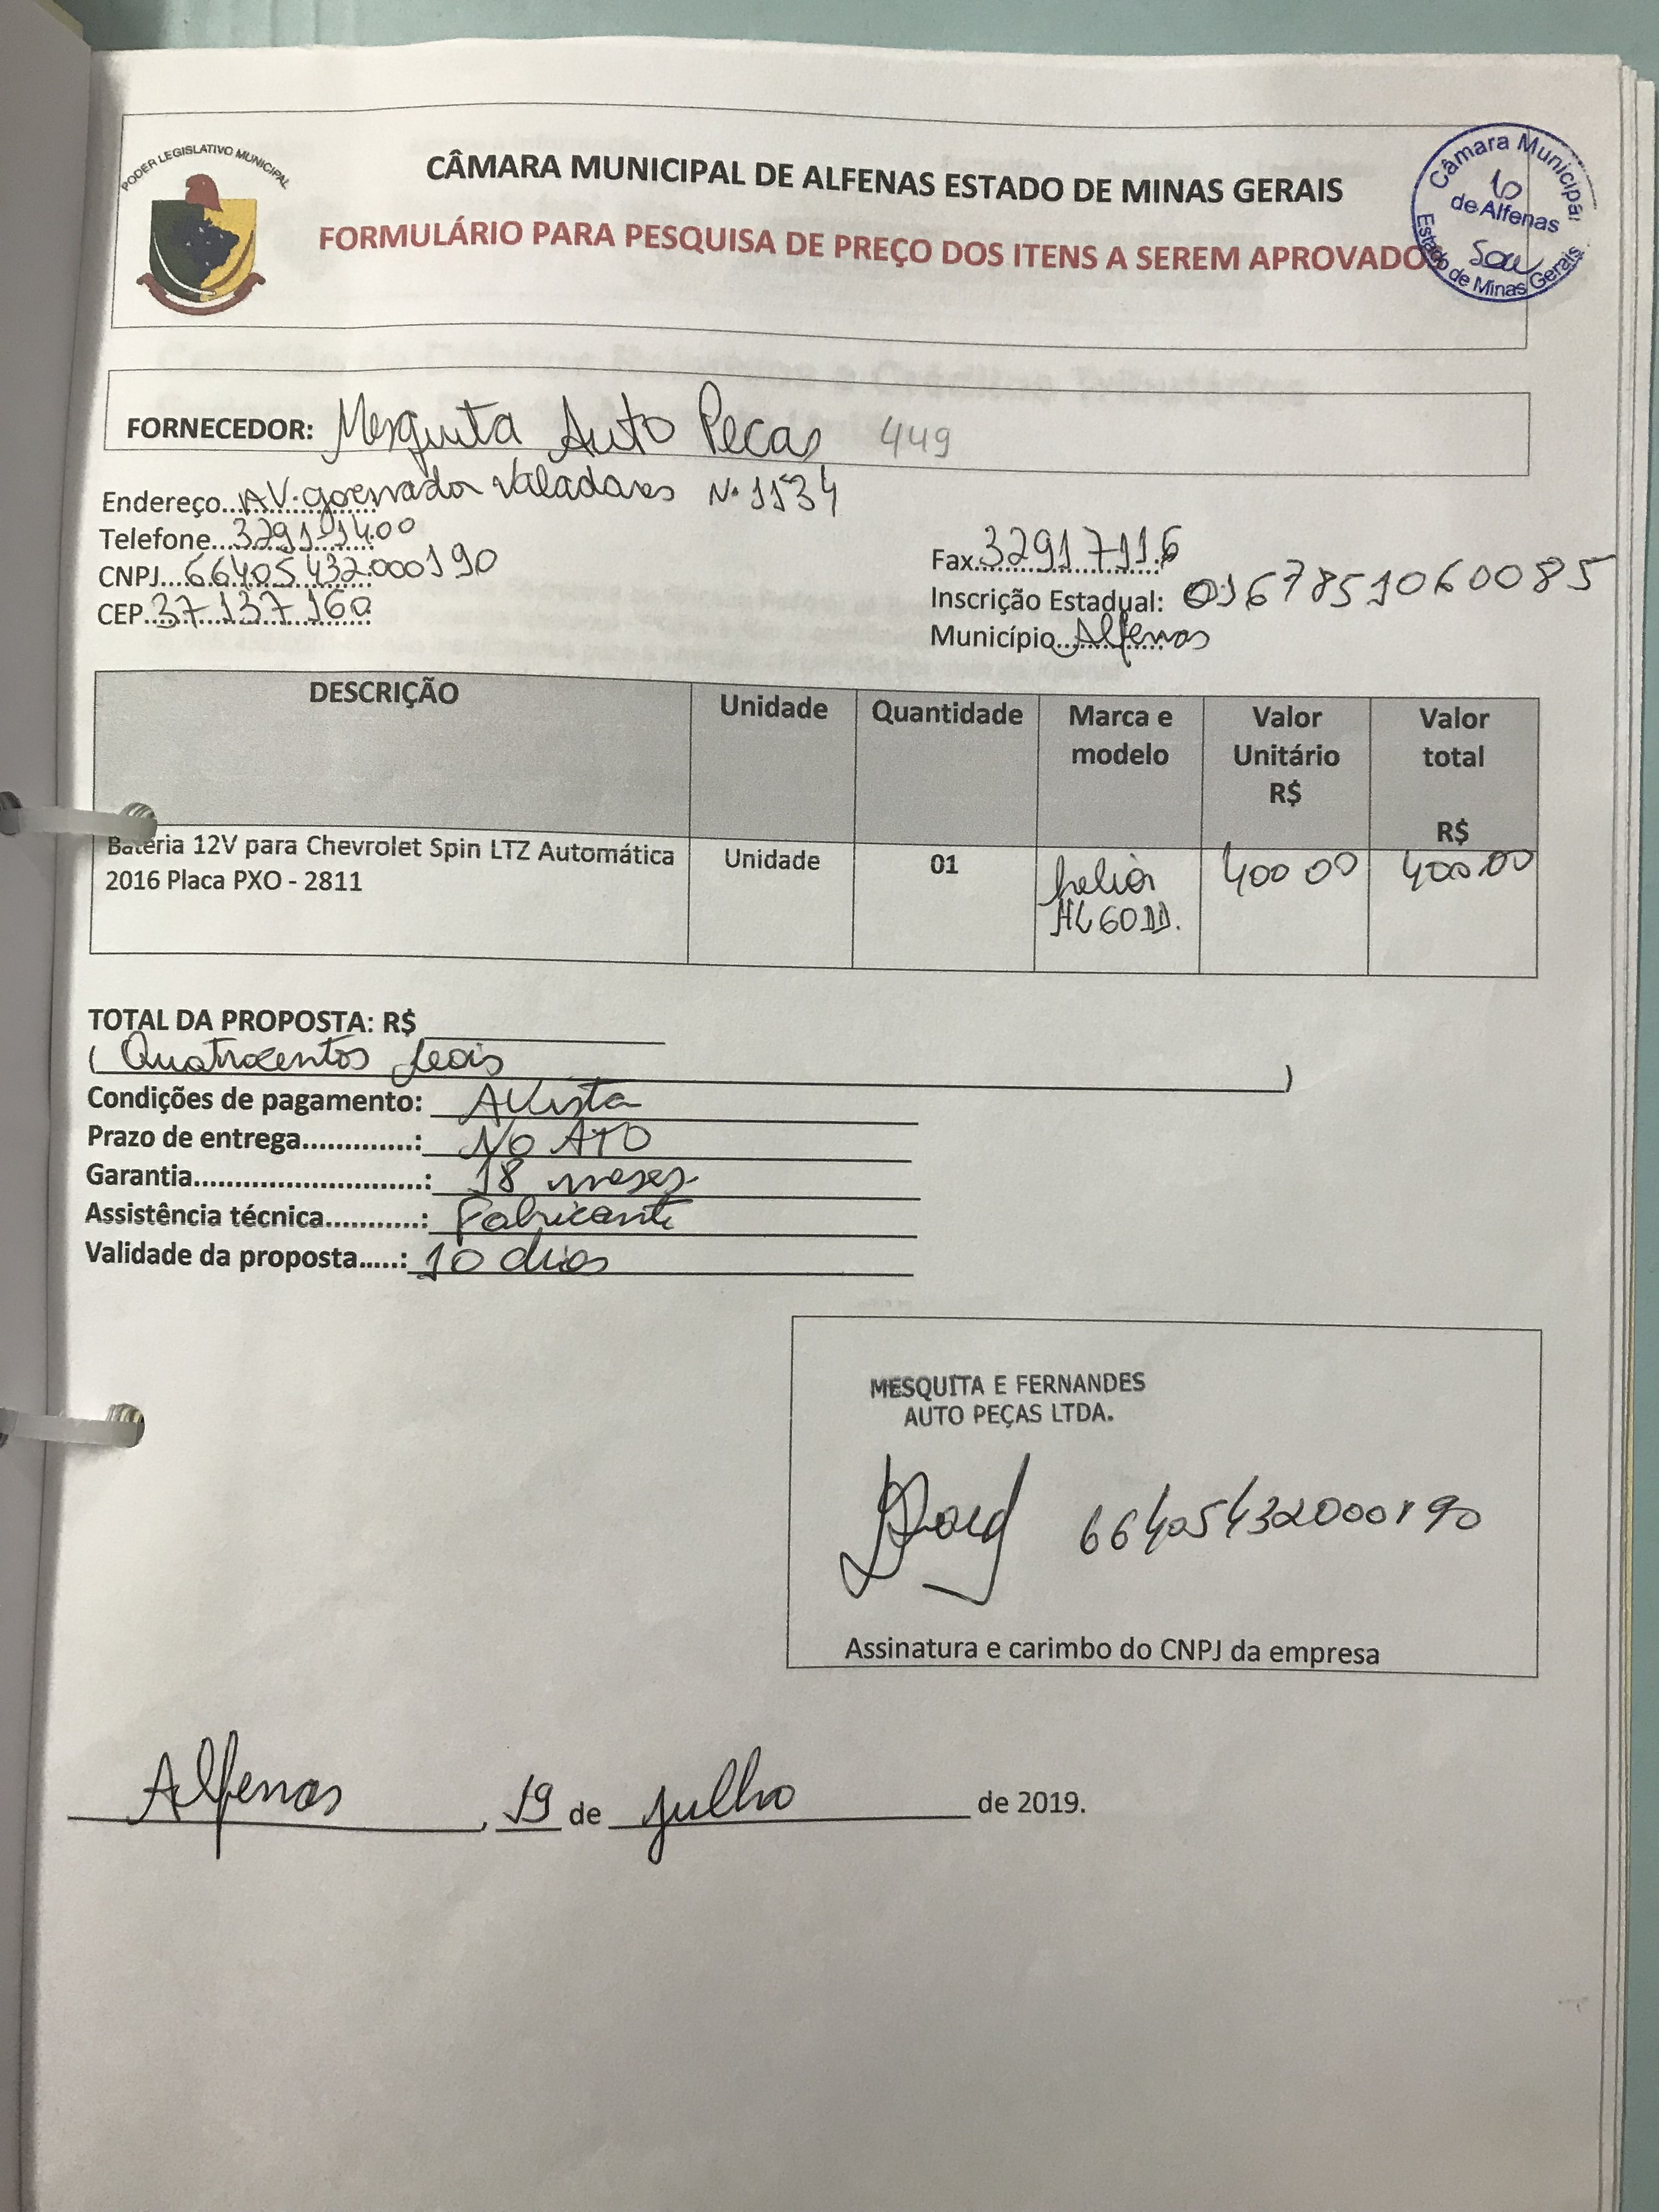 PODER LEGISLATIVO MUNICIPAL
CÂMARA MUNICIPAL DE ALFENAS ESTADO DE MINAS GERAIS
FORMULÁRIO PARA PESQUISA DE PREÇO DOS ITENS A SEREM APROVADO
Câmara Municipal
10
de Alfenas
Estado de Minas Gerais
FORNECEDOR: Mesquita Auto Pecas 449
Endereço...AV. governador Valadares Nº 1134
Telefone...3291-1400
Fax...32917116
CNPJ...66405432000190
Inscrição Estadual: 0167851060085
CEP...37137160
Município...Alfenas
DESCRIÇÃO Unidade Quantidade Marca e modelo Valor Unitário R$ Valor total R$
Bateria 12V para Chevrolet Spin LTZ Automática Unidade 01 helior 400 00 400.00
2016 Placa PXO - 2811 HL60DD.
TOTAL DA PROPOSTA: R$
(Quatrocentos Reais )
Condições de pagamento: AVista
Prazo de entrega.............: NO ATO
Garantia...........................: 18 meses
Assistência técnica...........: Fabricante
Validade da proposta.....: 10 dias
MESQUITA E FERNANDES
AUTO PEÇAS LTDA.
66405432000190
Assinatura e carimbo do CNPJ da empresa
Alfenas, 19 de julho de 2019.